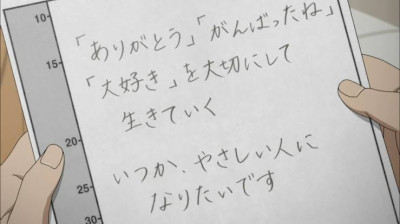 10-
15-
20-
25-
30-
「ありがとう」「がんばったね」
「大好き」を大切にして
生きていく
いつか、やさしい人に
なりたいです